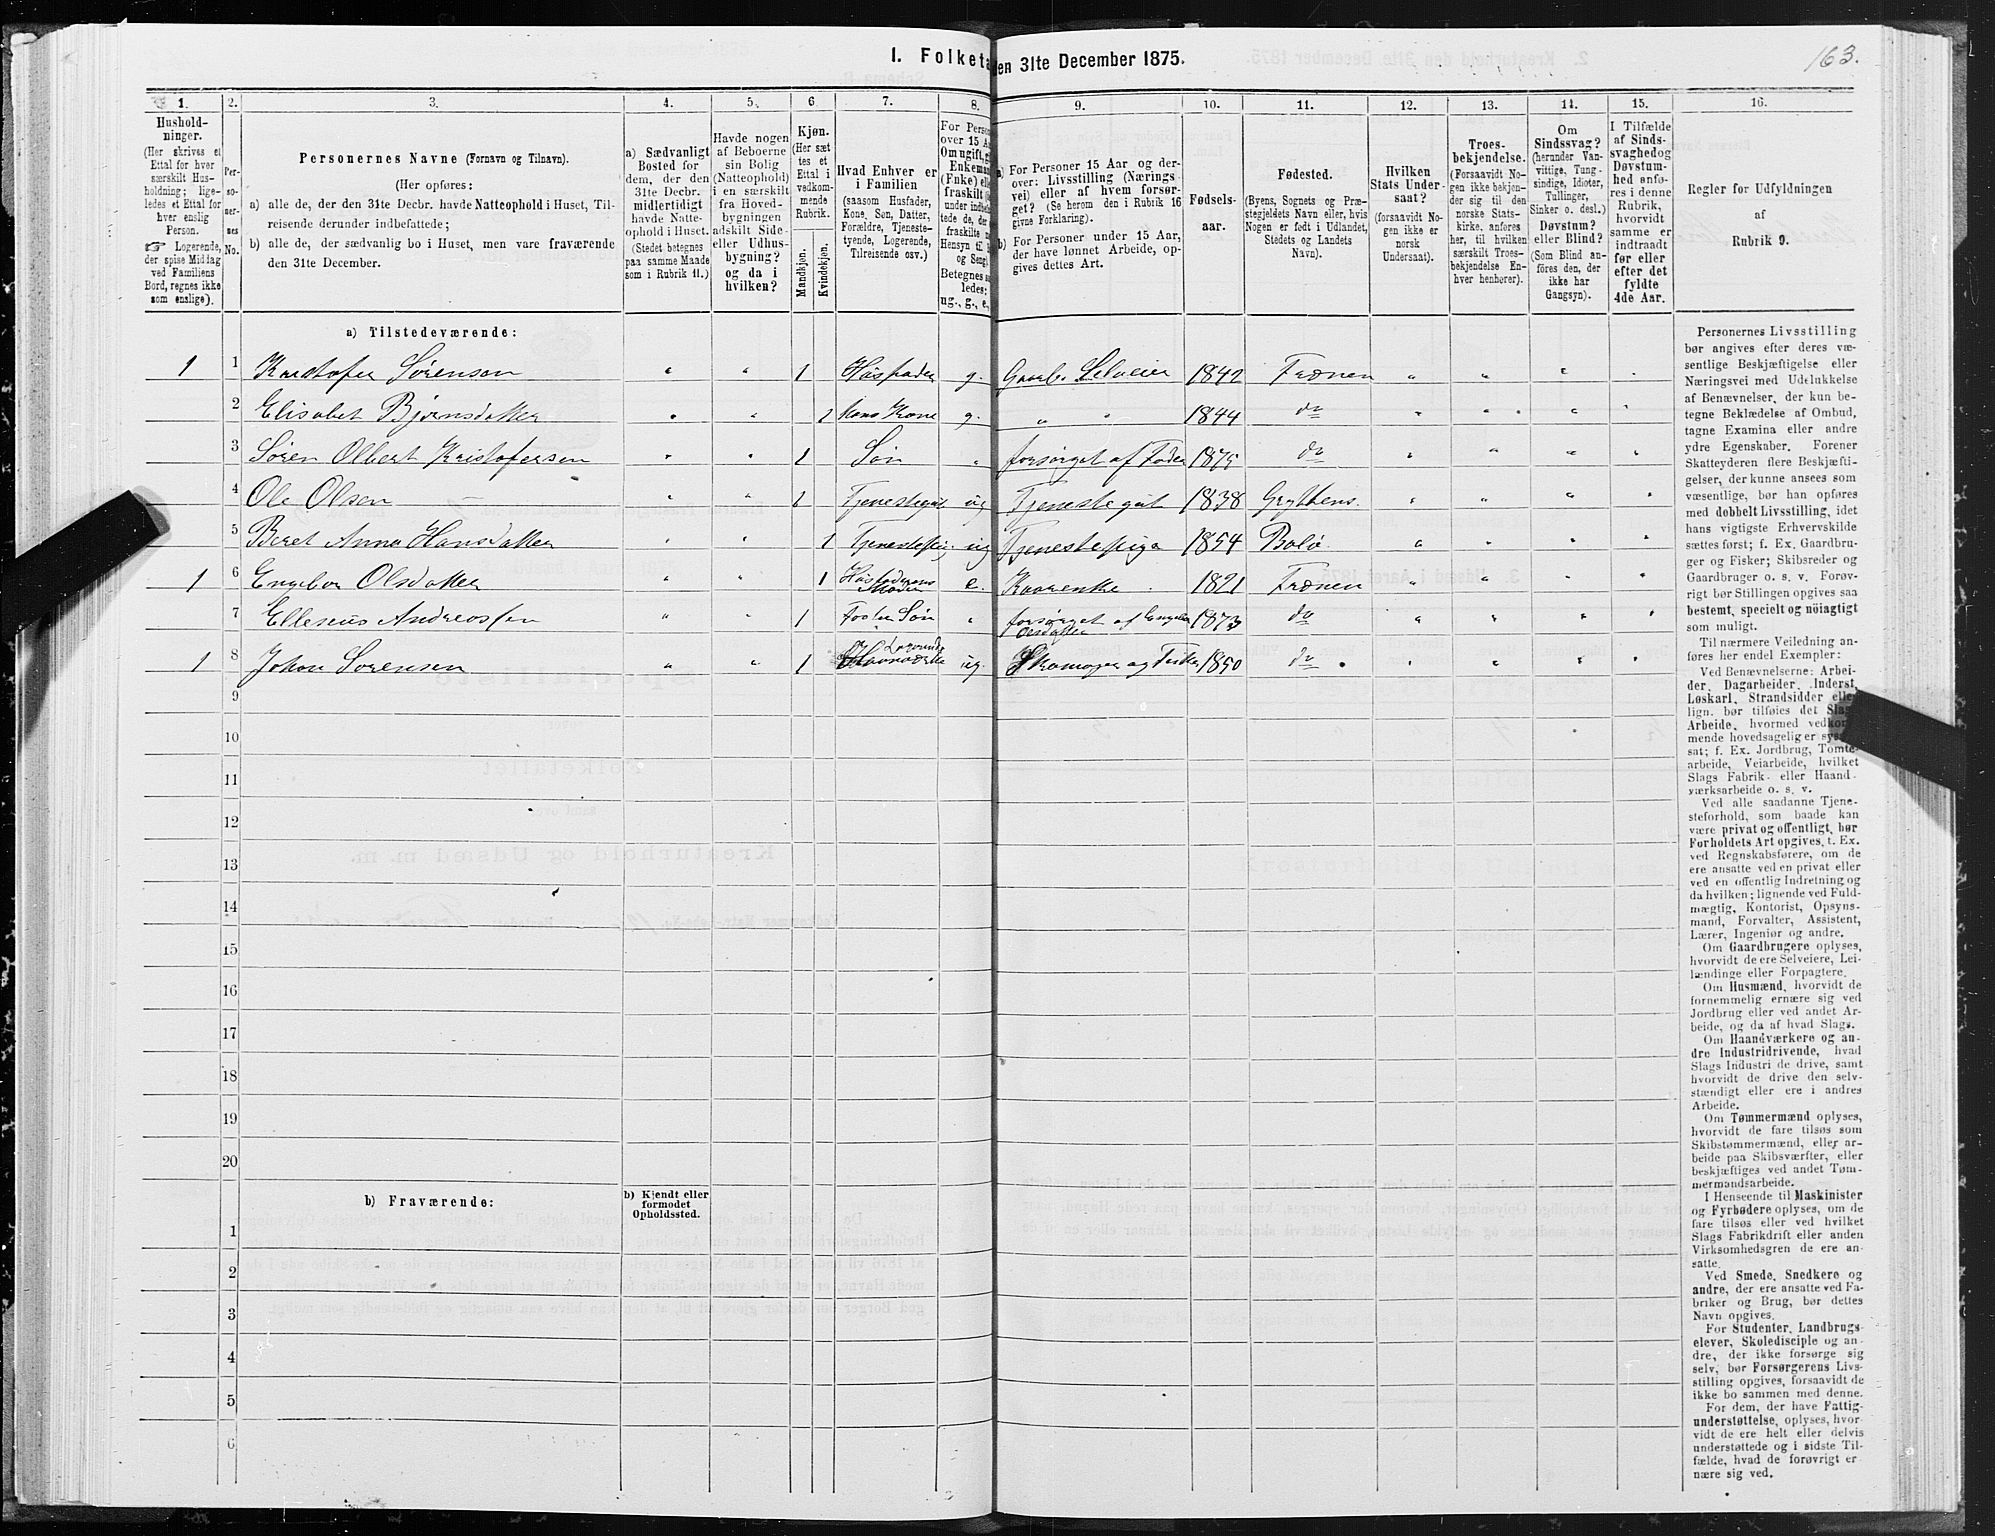 163.
I. Folketa
en 31te December 1875.
1.
2.
3.
4.
5.
6
7.
8.
9.
10.
11.
12.
13.
14.
15.
16.
Hushold-
ninger.
(Her skrives et
Ettal for hver
særskilt Hus-
holdning; lige-
ledes et Ettal for
hver enslig
Person.
☞ Logerende,
der spise Middag
ved Familiens
Bord, regnes ikke
som enslige).
Per-
so-
ner-
nes
No.
Personernes Navne (Fornavn og Tilnavn).
(Her opføres:
a) alle de, der den 31te Decbr. havde Natteophold i Huset, Til-
reisende derunder indbefattede;
b) alle de, der sædvanlig bo i Huset, men vare fraværende
den 31te December.
a) Sædvanligt
Bosted for
dem, der den
31te Decbr.
midlertidigt
havde Natte-
ophold i Huset.
(Stedet betegnes
paa samme Maade
som i Rubrik 11.)
Havde nogen
af Beboerne
sin Bolig
(Natteophold)
i en særskilt
fra Hoved-
bygningen
adskilt Side-
eller Udhus-
bygning?
og da i
hvilken?
Kjøn.
(Her sæt
tes et
Ettal i
vedkom-
mende
Rubrik.
Mandkjøn.
Kvindekjøn.
Hvad Enhver er
i Familien
(saasom Husfader,
Kone, Søn, Datter,
Forældre, Tjeneste-
tyende, Logerende,
Tilreisende osv.)
For Perso
over 15 Aa
Om ugift, g
Enkema
(Enke) elle
fraskilt
under indb
tede de, der
fraskilte
Hensyn til
og Seng
Betegnes s
ledes:
ug., g., e.,
a) For Personer 15 Aar og der-
over: Livsstilling (Nærings
vei) eller af hvem forsør-
get? (Se herom den i Rubrik 16
givne Forklaring).
b) For Personer under 15 Aar,
der have lønnet Arbeide, op-
gives dettes Art.
Fødsels-
aar.
Fødested.
(Byens, Sognets og Præ-
stegjeldets Navn eller, hvis
Nogen er født i Udlandet,
Stedets og Landets
Navn).
Hvilken
Stats Under-
saat?
(forsaavidt No-
gen ikke er
norsk
Undersaat).
Troes-
bekjendelse.
(Forsaavidt No-
gen ikke bekjen-
der sig til den
norske Stats-
kirke, anføres
her, til hvilken
særskilt Troes-
bekjendelse En-
hver henhører).
Om
Sindssvag?
(herunder Van-
vittige, Tung-
sindige, Idioter,
Tullinger,
Sinker o. desl.)
Døvstum?
eller Blind?
(Som Blind an-
føres den, der
ikke har
Gangsyn).
I Tilfælde
af Sinds-
svaghed og
Døvstum-
hed anfø-
res i denne
Rubrik,
hvorvidt
samme er
indtraadt
før eller
efter det
fyldte
4de Aar.
Regler for Udfyldningen
af
Rubrik 9.
a) Tilstedeværende:
1 1 Kristofer Sørensen " " 1 Husfader g. Gaardb. Selveier 1842 Frænen " " " "
2 Elisabet Bjørnsdatter " " 1 hans Kone g. " " 1844 do " " " "
3 Søren Olbert Kristofersen " " 1 Søn " forsørget af Fader 1875 do " " " "
4 Ole Olsen — " " 1 Tjenestegut ug Tjenestegut 1838 Gryttens " " " "
5 Beret Anna Hansdatter " " 1 Tjenestepig ug Tjenestepige 1854 Bolsø " " " "
1 6 Engebor Olsdatter " " 1 Husfaderens Moder e. Kaarenke 1821 Frænen " " " "
7 Elleseus Andreassen " " 1 Foster Søn " forsørget af Engebor Olsdatter 1873 do " " " "
1 8 Johan Sørensen " " 1 Logerende ug. Skomager og Fisker 1850 do " " " "
9
10
11
12
13
14
15
16
17
18
19
20
b) Fraværende:
b) Kjendt eller
formodet
Opholdssted.
1
2
3
4
5
6
Personernes Livsstilling
bør angives efter deres væ-
sentlige Beskjæftigelse eller
Næringsvei med Udelukkelse
af Benævnelser, der kun be-
tegne Beklædelse af Ombud,
tagne Examina eller andre
ydre Egenskaber. Forener
Skatteyderen flere Beskjæfti-
gelser, der kunne ansees som
væsentlige, bør han opføres
med dobbelt Livsstilling, idet
hans vigtigste Erhvervskilde
sættes først; f. Ex. Gaardbru-
ger og Fisker; Skibsreder og
Gaardbruger o. s. v. Forøv-
rigt bør Stillingen opgives saa
bestemt, specielt og nöiagtigt
som muligt.
Til nærmere Veiledning an-
føres her endel Exempler:
Ved Benævnelserne: Arbei-
der, Dagarbeider, Inderst,
Løskarl, Strandsidder eller
lign. bør tilføies det Slags
Arbeide, hvormed vedkom-
mende hovedsagelig er syssel-
sat; f. Ex. Jordbrug, Tomte-
arbeide, Veiarbeide, hvilket
Slags Fabrik- eller Haand-
værksarbeide o. s. v.
Ved alle saadanne Tjene-
steforhold, som baade kan
være privat og offentligt, bør
Forholdets Art opgives, t. Ex.
ved Regnskabsførere, om de
ere ansatte ved en privat eller
ved en offentlig Indretning og
da hvilken; lignende ved Fuld-
mægtig, Kontorist, Opsyns-
mand, Forvalter, Assistent,
Lærer, Ingeniør og andre.
Om Gaardbrugere oplyses,
hvorvidt de ere Selveiere, Lei-
lændinge eller Forpagtere.
Om Husmænd, hvorvidt de
fornemmelig ernære sig ved
Jordbrug eller ved andet Ar-
beide, og da af hvad Slags.
Om Haandværkere og an-
dre Industridrivende, hvad
Slags Industri de drive, samt
hvorvidt de drive den selv-
stændigt eller ere i andres
Arbeide.
Om Tømmermænd oplyses,
hvorvidt de fare tilsøs som
Skibstømmermænd, eller ar-
beide paa Skibsværfter, eller
beskjæftiges ved andet Tøm-
mermandsarbeide.
I Henseende til Maskinister
og Fyrbødere oplyses, om de
fare tilsøs eller ved hvilket
Slags Fabrikdrift eller anden
Virksomhedsgren de ere an-
satte.
Ved Smede, Snedkere og
andre, der ere ansatte ved Fa-
briker og Brug, bør dettes
Navn opgives.
For Studenter, Landbrugs-
elever, Skoledisciple og an-
dre, der ikke forsørge sig
selv, bør Forsørgerens Livs-
stilling opgives, forsaavidt de
ikke bo sammen med denne.
For dem, der have Fattig-
understøttelse, oplyses, hvor-
vidt de ere helt eller delvis
understøttede og i sidste Til-
fælde, hvad de forøvrigt er
nære sig ved.